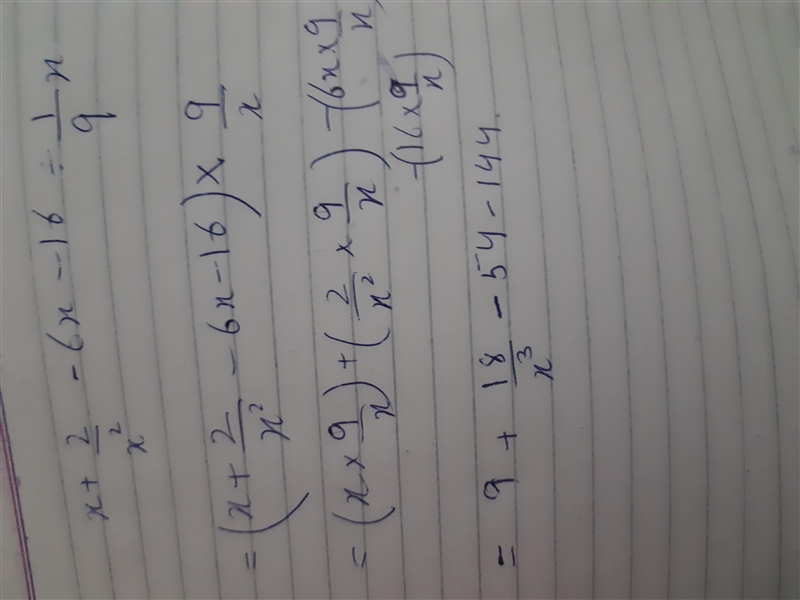 x + 2/x² - 6x - 16 ÷ 1/9 x
= (x + 2/x² - 6x - 16) × 9/x
= (x × 9/x) + (2/x² × 9/x) - (6x × 9/x)
- (16 × 9/x)
= 9 + 18/x³ - 54 - 144